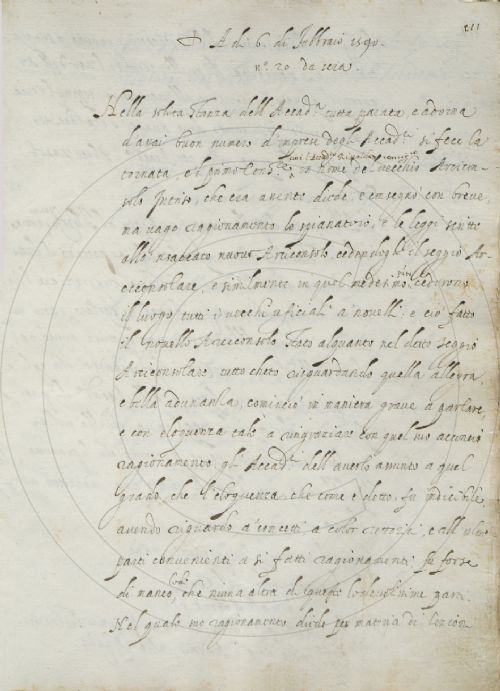 211
A dì 6. di Febbraio 1590.
n.° 20. da sera.
Nella solita stanza dell'Accad.ª tutta parata, e adorna
d'assai buon numero d'imprese degli Accad.ⁱ si fece la
tornata, e il primo Cons.ʳᵉ in nome del vecchio Arcicon-
solo Inteso, che era assente, diede, e consegnò con breve,
ma vago ragionamento lo spianatoio, e le leggi scritte
allo nuovo Arciconsolo, cedendogli il seggio Ar-
ciconsolare, e similmente in quel medesimo cederono
il luogo tutti i vecchi uficiali a' novelli; e ciò fatto
il novello Arciconsolo stato alquanto nel detto seggio
Arciconsolare, tutto cheto risguardando quella allegra,
e bella adunanza, cominciò in maniera grave a parlare,
e con eloquenza tale a ringraziare con quel suo acconcio
ragionamento gl'Accad.ⁱ dell'averlo assunto a quel
grado, che l'eloquenza, che come è detto, fu indicibile
avendo riguardo a' concetti, a' color rettorici, e all'altre
parti convenienti a sì fatti ragionamenti fu forse
di manco lode, che niuna altra di queste lodevolissime parti.
Nel quale suo ragionamento diede per materia di lezion